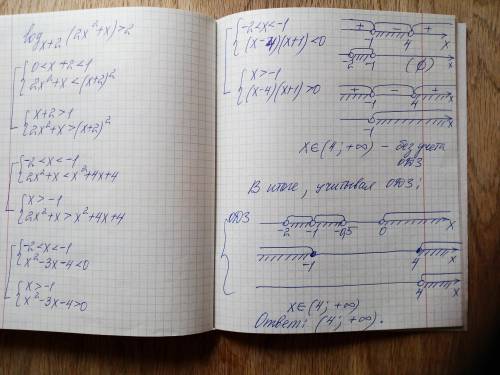 log x+2 (2x²+x)>2
0<x+2<1
2x²+x<(x+2)²
x+2>1
2x²+x>(x+2)²
-2<x<-1
2x²+x<x²+4x+4
x>-1
2x²+x>x²+4x+4
-2<x<-1
x²-3x-4<0
x>-1
x²-3x-4>0
-2<x<-1
(x-4)(x+1)<0
x>-1
(x-4)(x+1)>0
+ - +
-1 4 x
-2 -1 (∅) x
+ - +
-1 4 x
-1 x
x∈(4;+∞) - без учета
ОДЗ
В итоге, учитывая ОДЗ:
ОДЗ
-2 -1 -0,5 0 x
-1 4 x
4 x
x∈(4;+∞)
Ответ: (4;+∞).